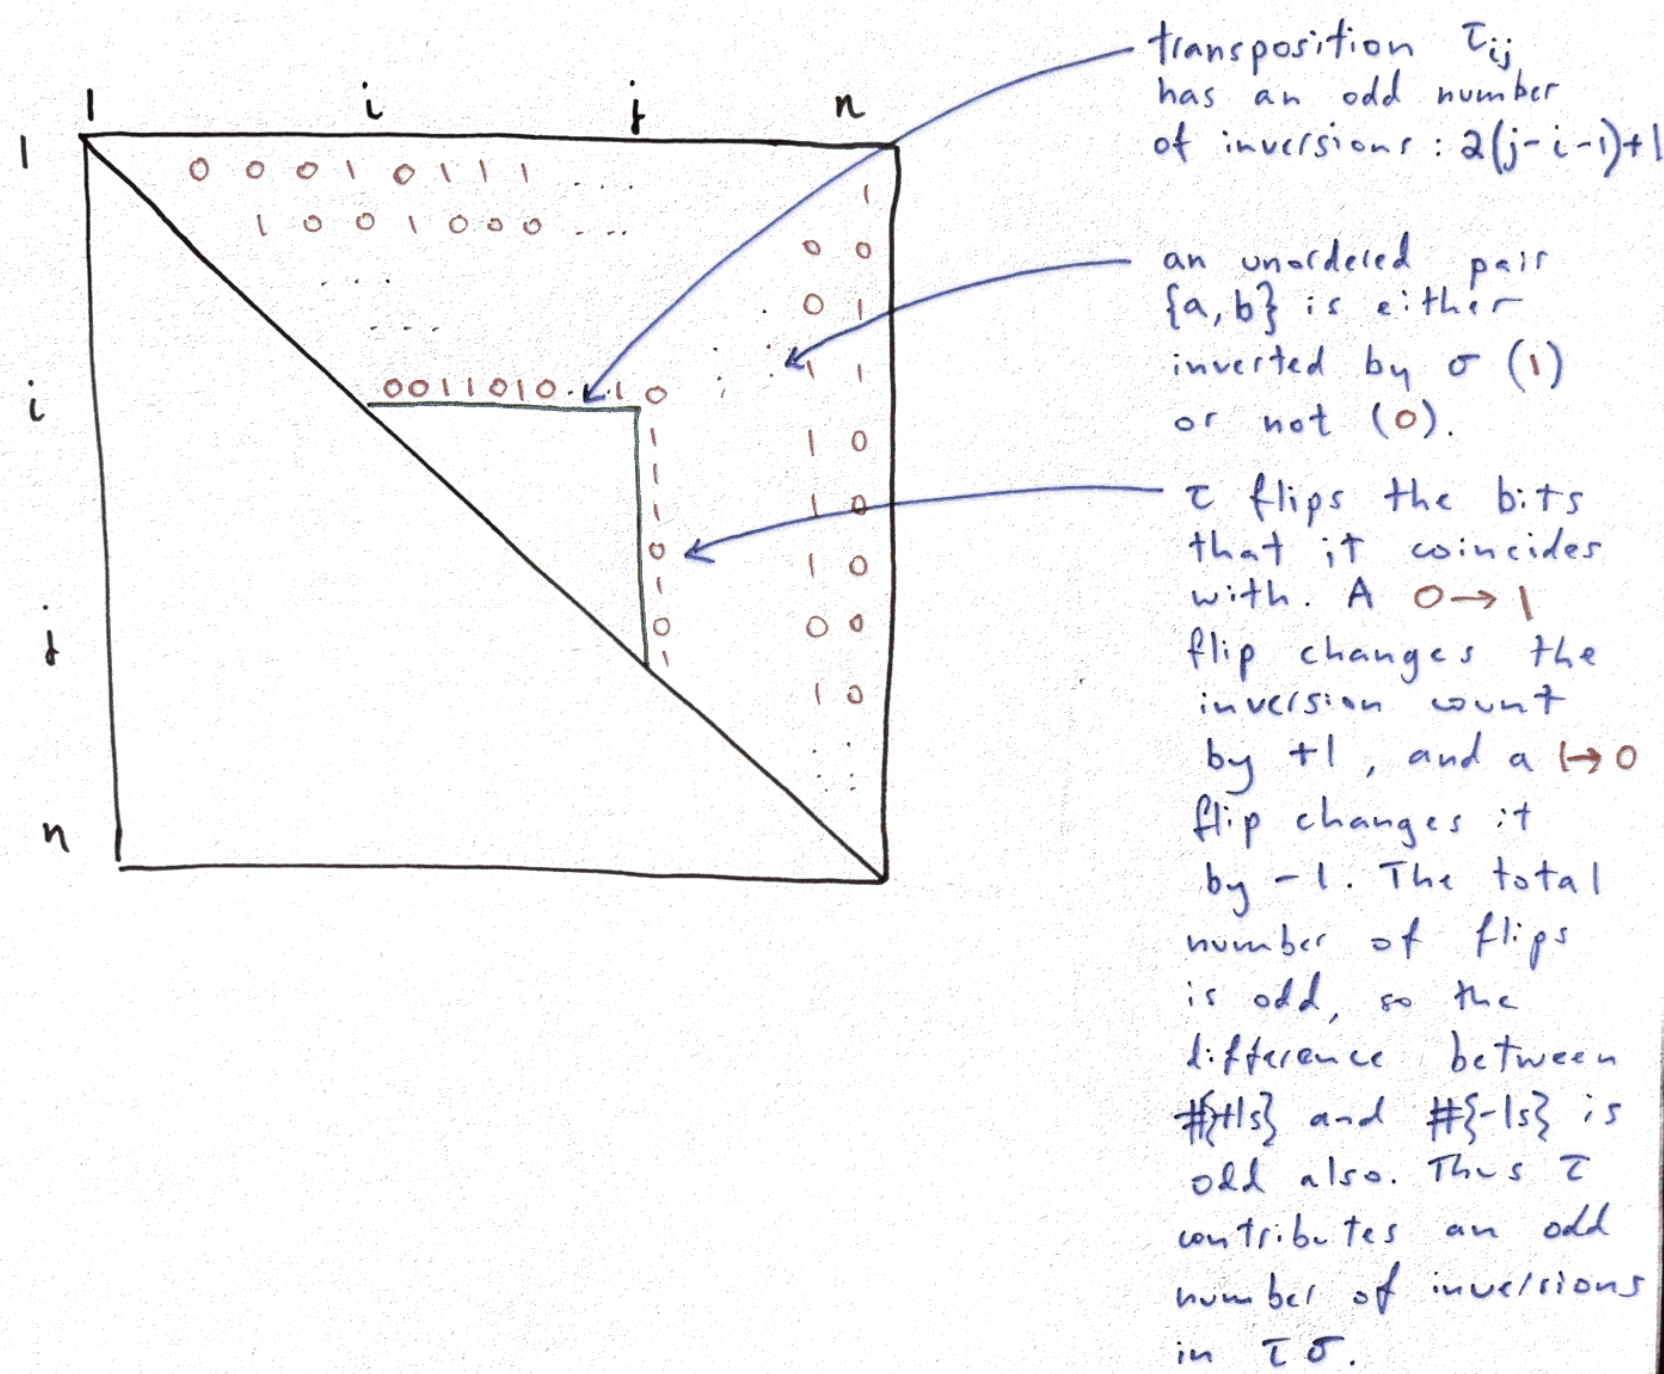 1 i j n
1
0 0 0 1 0 1 1 1 . . . .
1 0 0 1 0 0 0 . . . .
. . . .
. . . .
i
0 0 1 1 0 1 0 . . . 1 0
1
1
1
0
1
0
1
1
0 0
0 1
1 1
1 0
1 0
1 0
0 0
1 0
j
n
transposition τij
has an odd number
of inversions : 2(j-i-1)+1
an unordered pair
{a, b} is either
inverted by σ (1)
or not (0).
τ flips the bits
that it coincides
with. A 0→1
flip changes the
inversion count
by +1, and a 1→0
flip changes it
by -1. The total
number of flips
is odd, so the
difference between
#{+1s} and #{-1s} is
odd also. Thus τ
contributes an odd
number of inversions
in τσ.